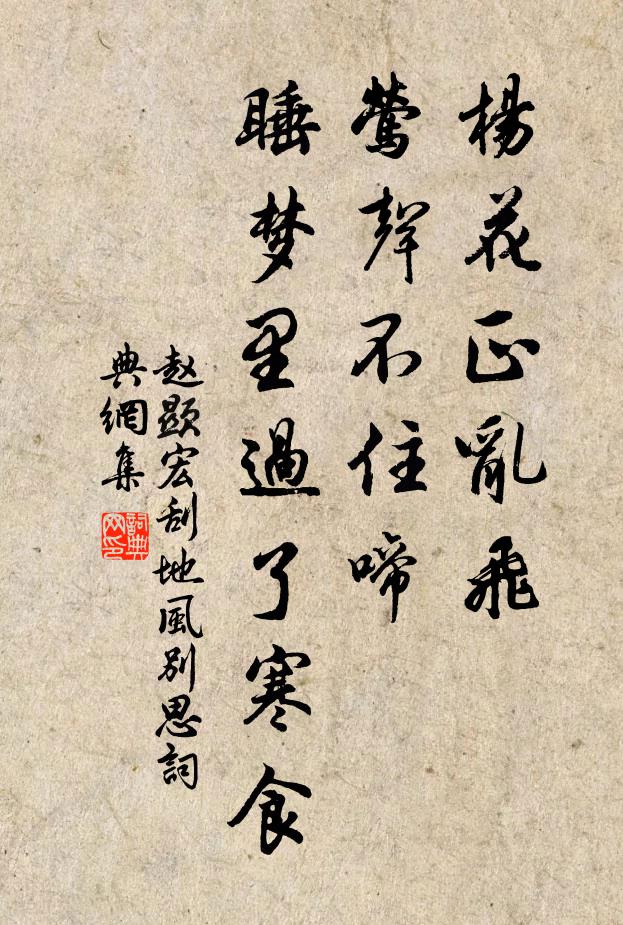 楊花正亂飛
鶯聲不住啼
睡梦里過了寒食
赵顯宏刮地風别思詞
典網集
詞典
网印